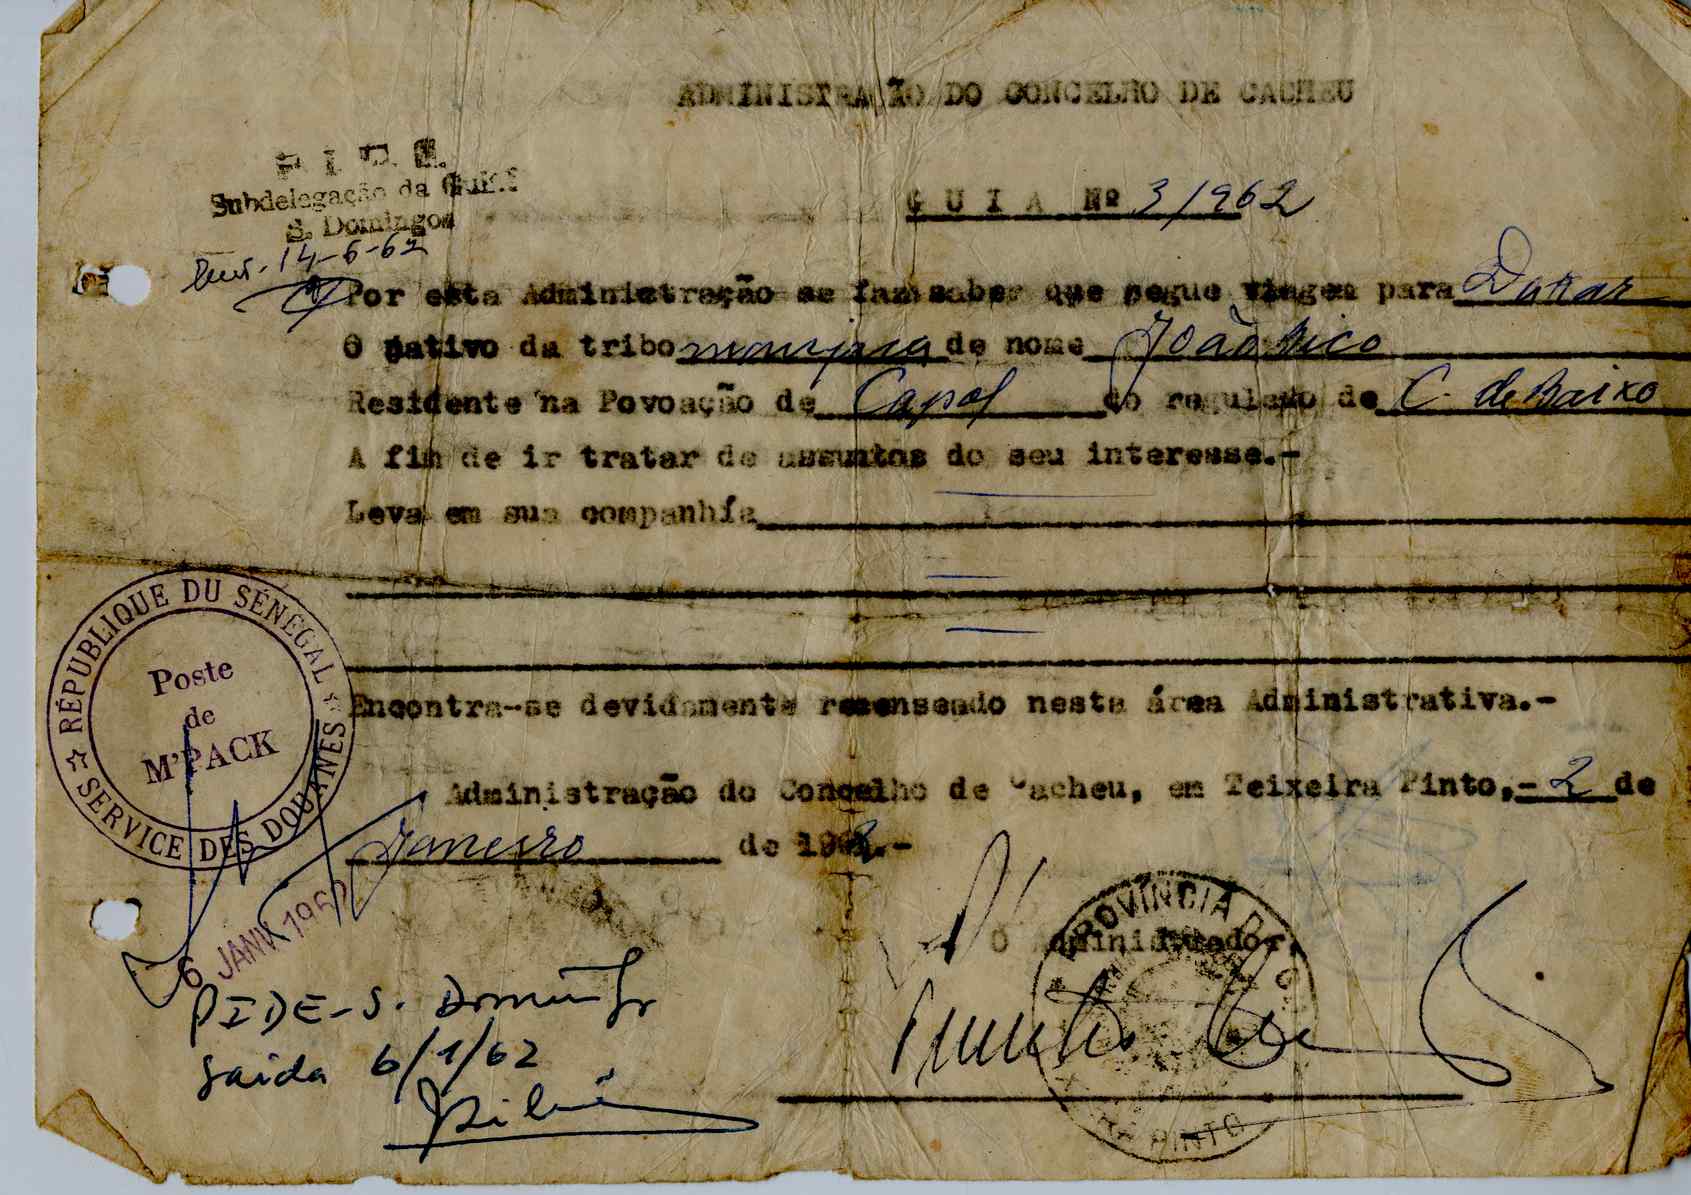 ADMINISTRAÇÃO DO CONCELHO DE CACHEU
P. I. D. E.
Subdelegação da Guiné
S. Domingos
14-6-62
GUIA Nº 3/1962
Por esta Administração se faz saber que segue viagem para Dakar
O nativo da tribo de nome João Mico
Residente na Povoação de Capol do regulado de C. de Baixo
A fim de ir tratar de assuntos do seu interesse.-
Leva em sua companhía
Encontra-se devidamente resenseado nesta área Administrativa.-
RÉPUBLIQUE DU SÉNÉGAL
Poste
de
M'PACK
SERVICE DES DOUANES
Administração do Concelho de Cacheu, em Teixeira Pinto,- 2 de
Janeiro de 1962.-
6 JANV 1962
O Administrador,
PROVÍNCIA DA G
PINTO
PIDE-S. Domingos
Saída 6/1/62